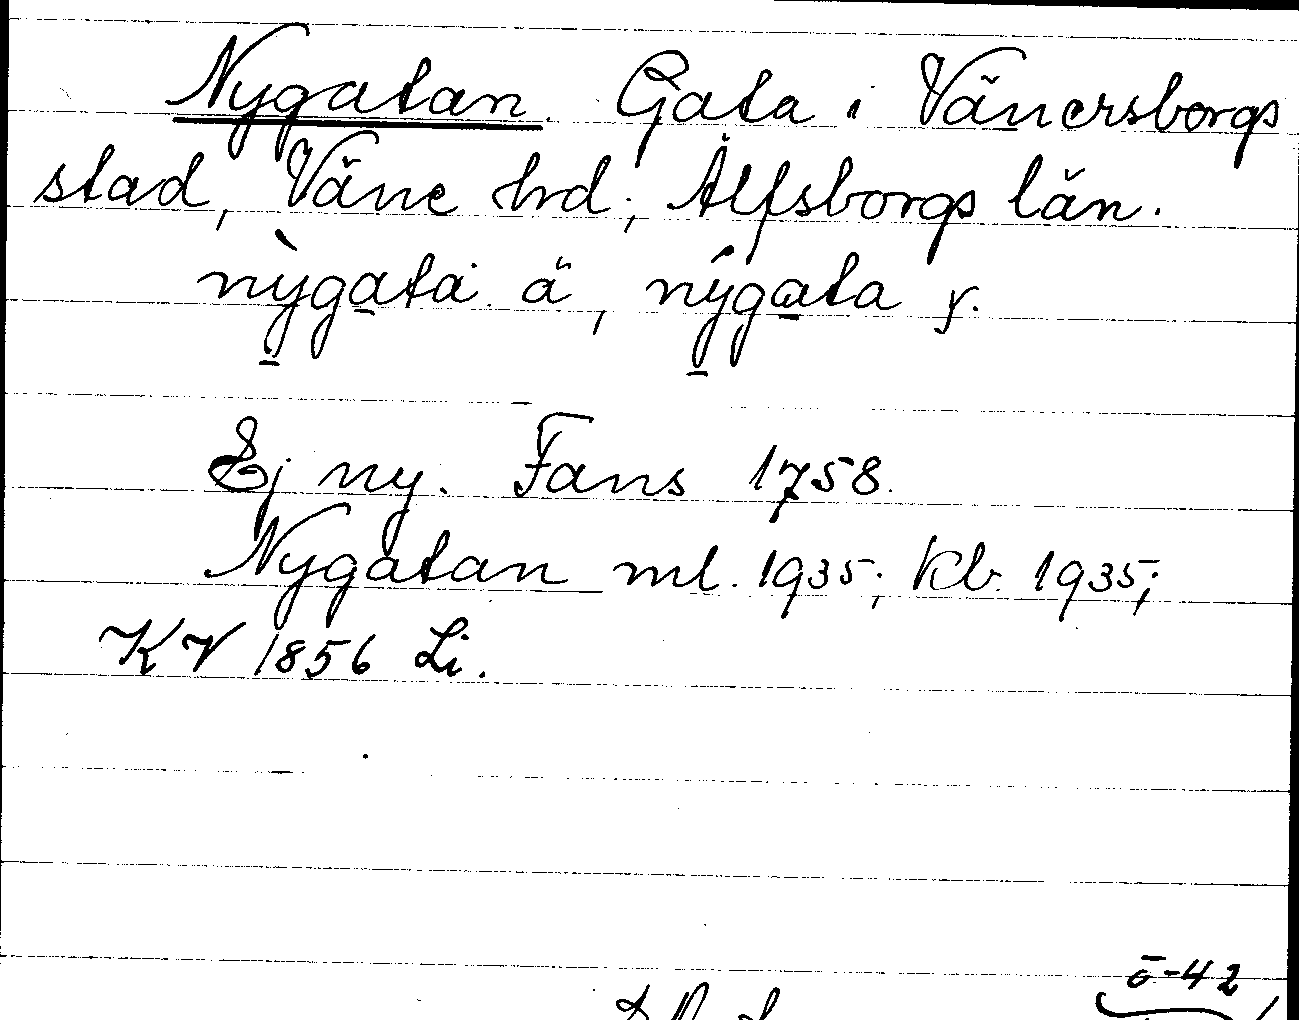 Nygatan. Gata i Vänersborgs
stad, Väne hrd, Älfsborgs län.
nỳgatȧ ä, nýgata y.
Ej ny. Fans 1758.
Nygatan ml. 1935; Kb. 1935;
KV 1856 Li.
ō-42